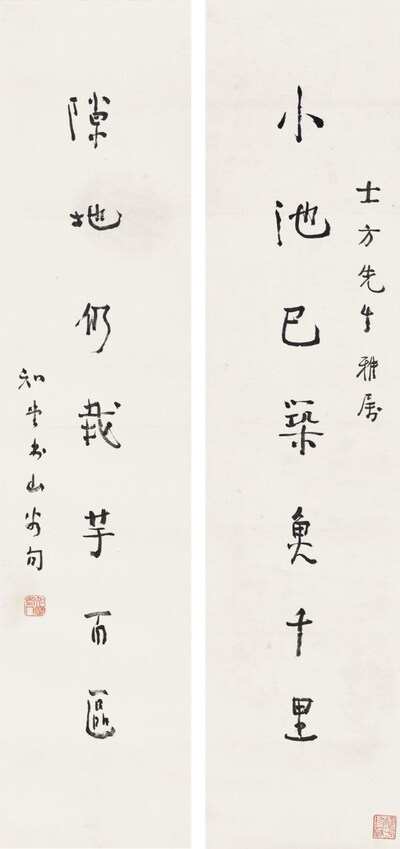 士方先生雅属
小池已築魚千里
隙地仍栽芋百區
知堂書山谷句